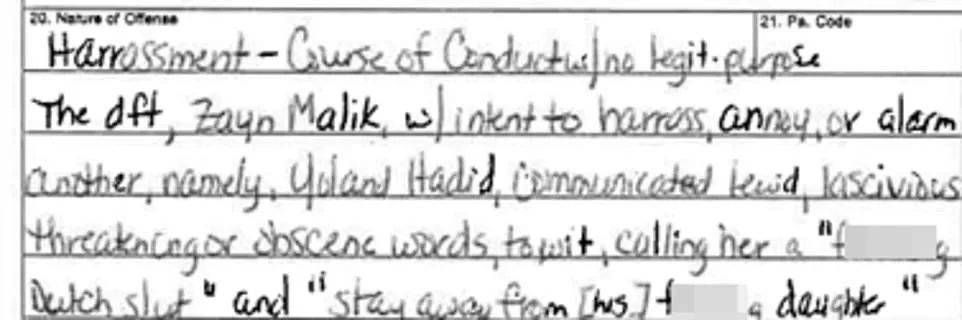 20. Nature of Offense 21. Pa. Code
Harrassment - Course of Conduct w/ no legit. purpose
The dft, Zayn Malik, w/ intent to harrass, annoy, or alarm
another, namely, Yoland Hadid, communicated lewd, lascivious
threatening or obscene words, to wit, calling her a "f g
Dutch slut" and "stay away from [his] f g daughter"